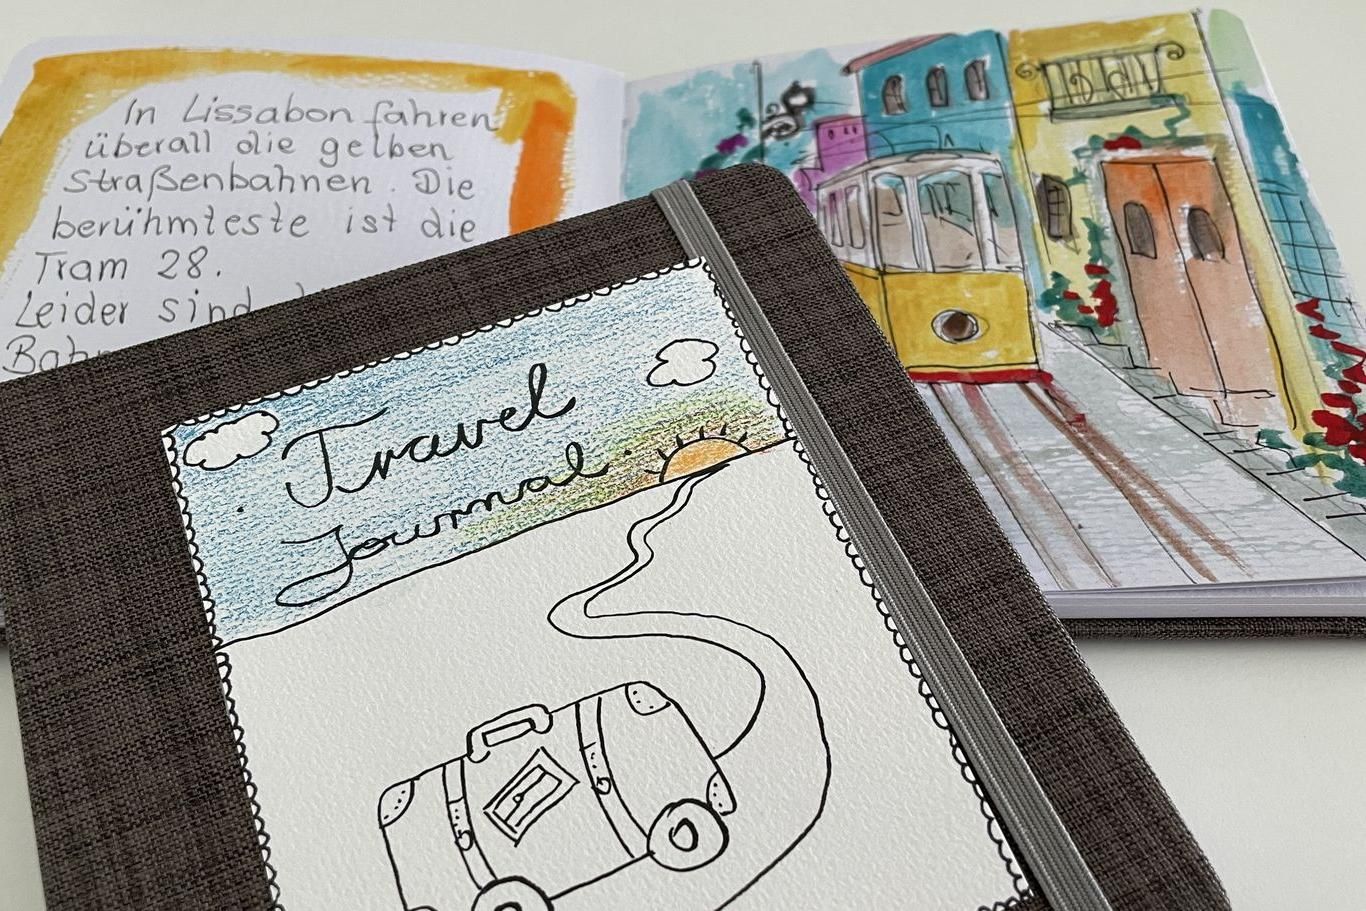 In Lissabon fahren
überall die gelben
Straßenbahnen. Die
berühmteste ist die
Tram 28.
Leider sind
Travel
Journal